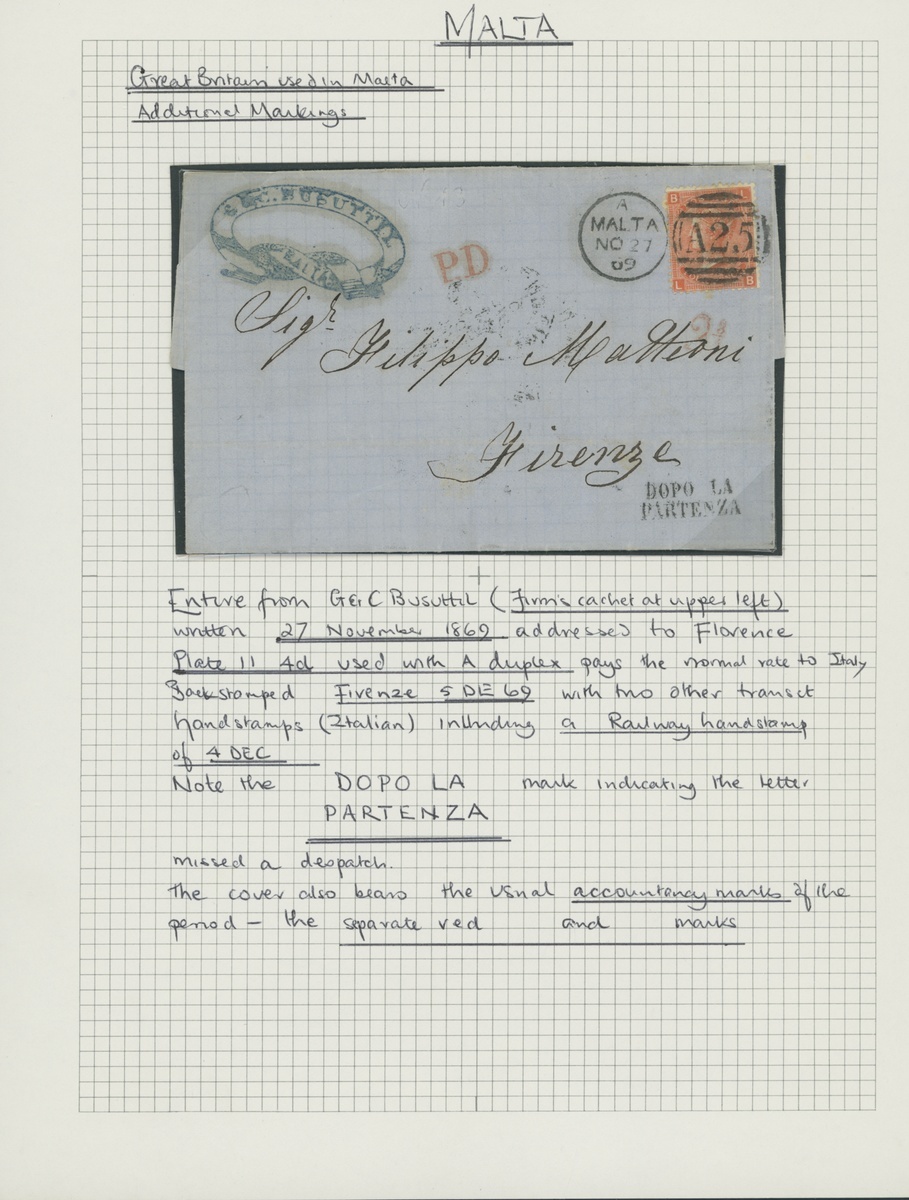 MALTA
Great Britain used in Malta
Additional Markings
G & C. BUSUTTIL
MALTA
P.D
A
MALTA
NO 27
69
A25
B L
L B
Sigr.
Filippo Matteoni
Firenze
DOPO LA
PARTENZA
Entire from G & C BUSUTTIL (Firm's cachet at upper left)
written 27 November 1869 addressed to Florence
Plate 11 4d used with A duplex pays the normal rate to Italy
Backstamped Firenze 5 DE 69 with two other transit
handstamps (Italian) inlnding a Railway handstamp
of 4 DEC
Note the DOPO LA mark indicating the letter
PARTENZA
missed a despatch.
The cover also bears the usual accountancy marks of the
period — the separate red and marks